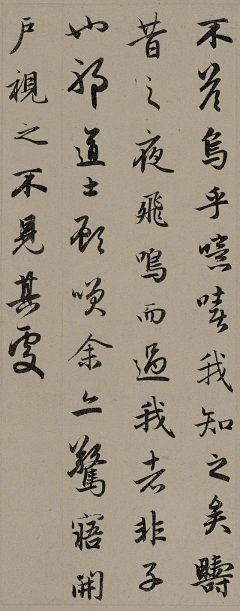 不答嗚乎噫嘻我知之矣疇
昔之夜飛鳴而過我者非子
也邪道士顧笑余亦驚寤開
戶視之不見其處